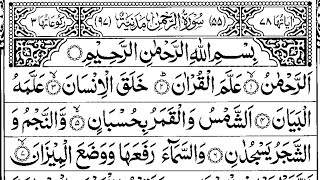 اٰیاتها ٧٨ (٥٥) سُوْرَةُ الرَّحْمٰنِ مَدَنِیَّةٌ (٩٧) رکوعاتها ٣
بِسْمِ اللّٰهِ الرَّحْمٰنِ الرَّحِیْمِ
اَلرَّحْمٰنُ ۙ﴿١﴾ عَلَّمَ الْقُرْاٰنَ ؕ﴿٢﴾ خَلَقَ الْاِنْسَانَ ۙ﴿٣﴾ عَلَّمَهُ
الْبَیَانَ ﴿٤﴾ اَلشَّمْسُ وَالْقَمَرُ بِحُسْبَانٍ ﴿٥﴾ وَّالنَّجْمُ وَ
الشَّجَرُ یَسْجُدٰنِ ﴿٦﴾ وَالسَّمَآءَ رَفَعَهَا وَوَضَعَ الْمِیْزَانَ ۙ﴿٧﴾